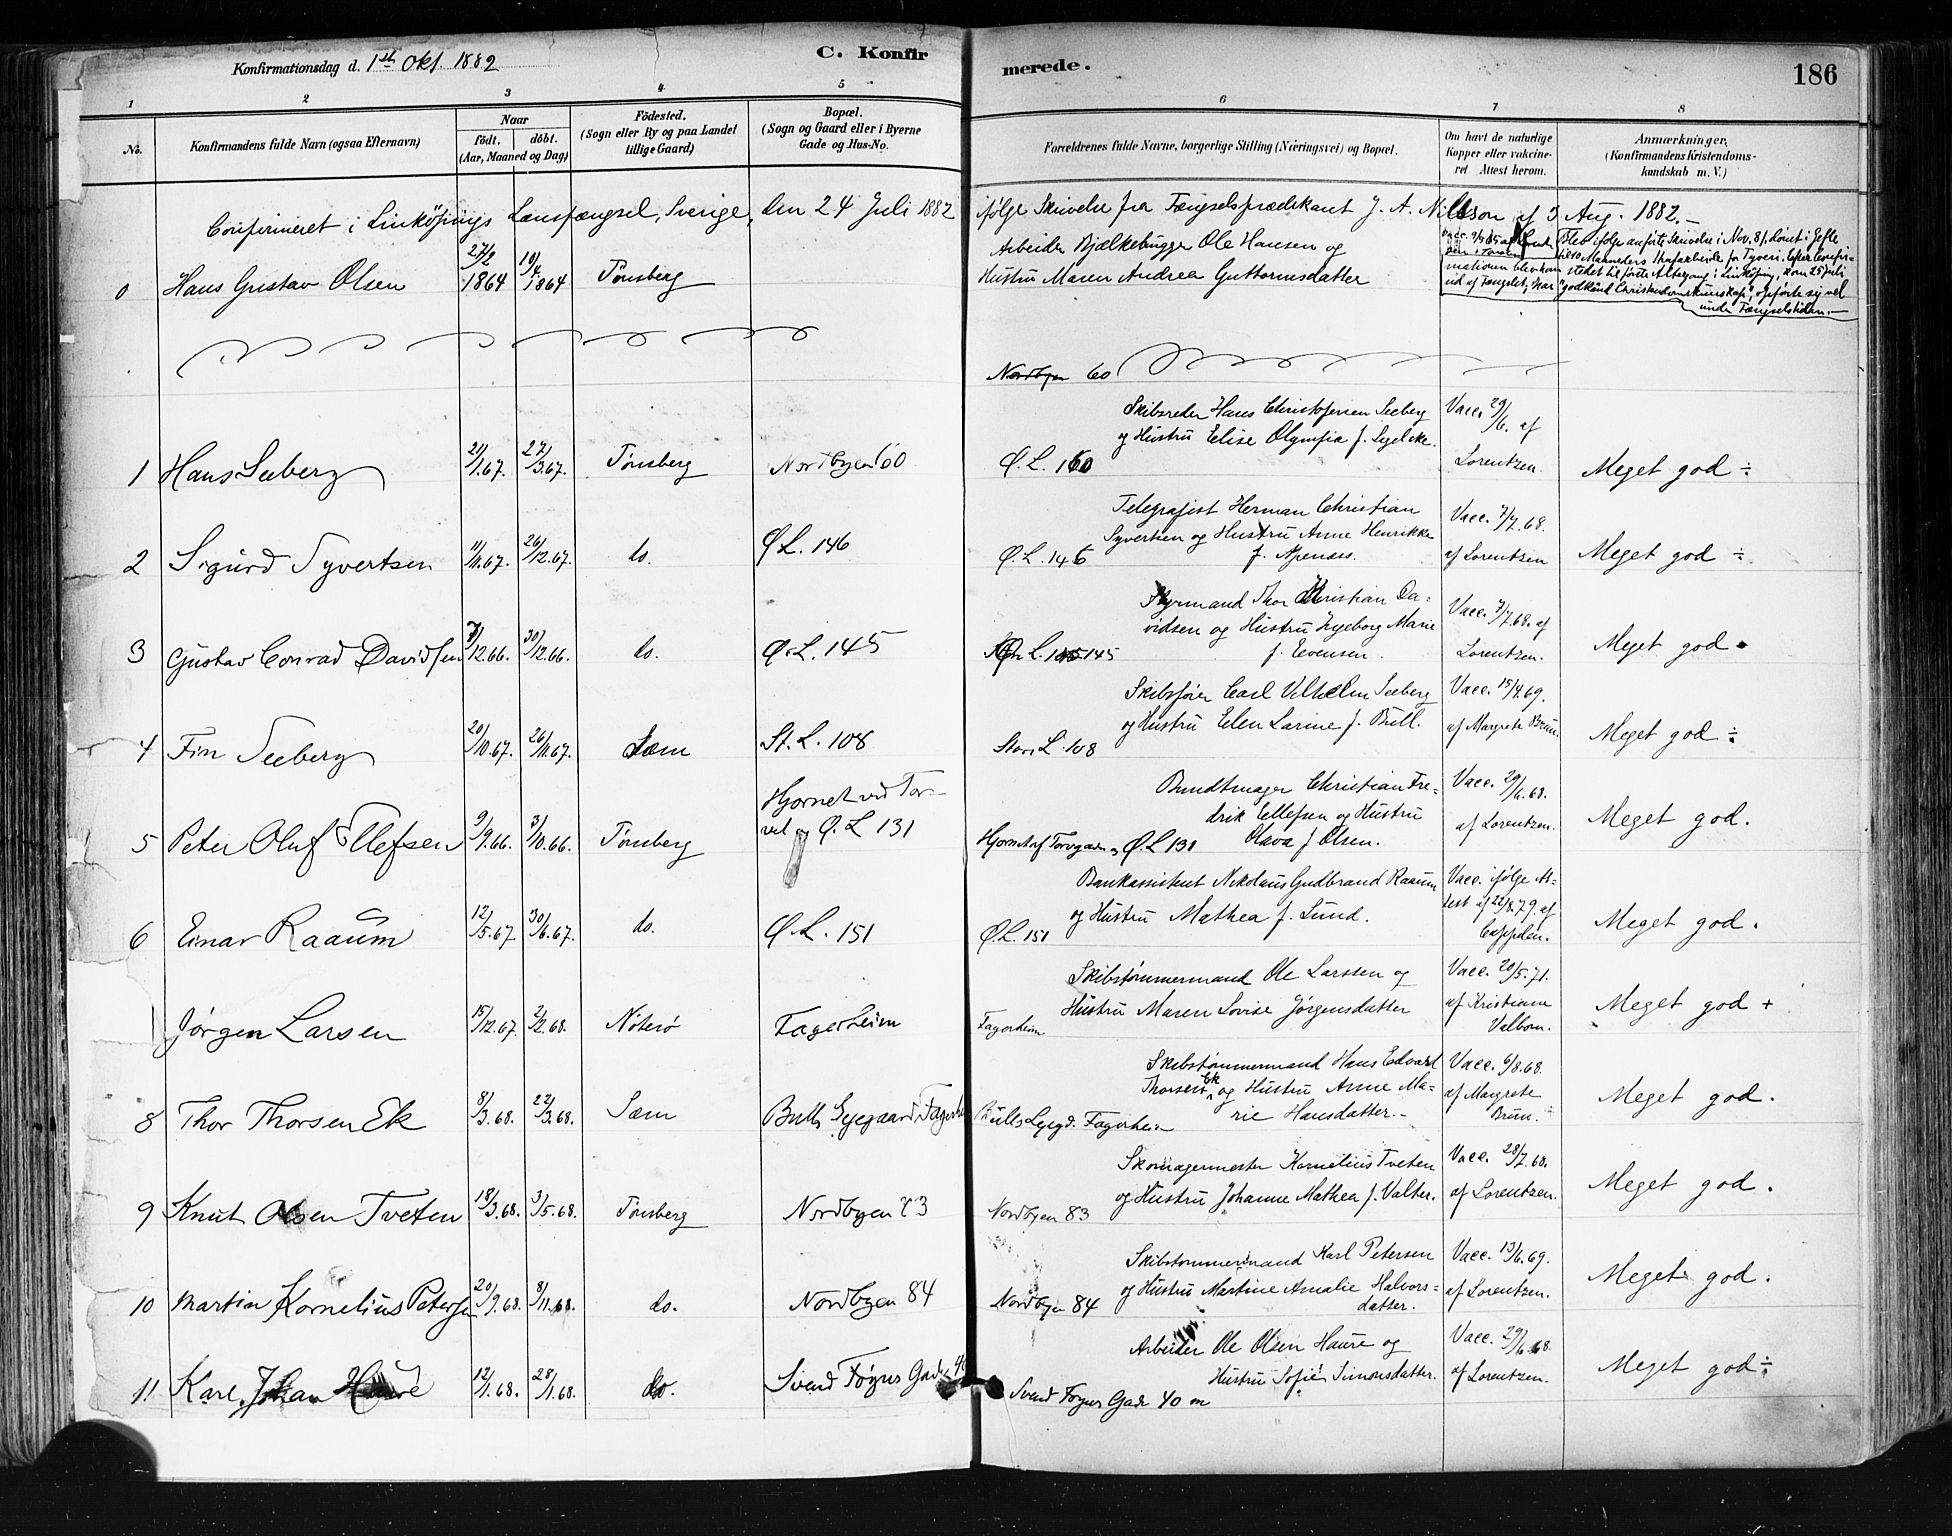 Konfirmationsdag d. 1ste Okt. 1882
C. Konfirmerede.
186
1 2 3 4 5 6 7 8
No.
Konfirmandens fulde Navn (ogsaa Efternavn)
Naar
født. døbt.
(Aar, Maaned og Dag)
Fødested.
(Sogn eller By og paa Landet
tillige Gaard)
Bopæl.
(Sogn og Gaard eller i Byerne
Gade og Hus-No.
Forældrenes fulde Navne, borgerlige Stilling (Næringsvei) og Bopæl.
Om havt de naturlige
Kopper eller vakcine-
ret Attest herom.
Anmærkninger,
(Konfirmandens Kristendoms-
kundskab m. V.)
Confirmeret i Linköpings Lænsfængsel, Sverige, den 24 Juli 1882 ifølge Skrivelse fra Fængselsprædikant J. A. Nilsson af 3 Aug. 1882.
0 Hans Gustav Olsen 27/2 1864 10/4 1864 Tønsberg
Arbeider Bjælkebygger Ole Hansen og
Hustru Maren Andrea Guttormsdatter
Blev ifølge anførte Skrivelse i Nov. 81 dømt i Gefle
Maaneders Strafarbeide for Tyveri. Efter Confir-
mationen blev han stedet til første Altergang i Linköping, kom 25 Juli
ud af Fængslet; har "godkänd Christendomskunskap", opførte sig vel
under Fængselstiden.
Nordbyen 60
1 Hans Seeberg 21/1.67. 27/3.67. Tønsberg Nordbyen 60
Skibsreder Hans Christofersen Seeberg
og Hustru Elise Olympia f. Segelcke.
Ø.L. 160
Vacc. 29/6. af
Lorentzen.
Meget god ÷
2 Sigurd Syvertsen 11/11.67. 26/12.67. do. Ø.L. 146
Telegrafist Herman Christian
Syvertsen og Hustru Anne Henrikke
f. Apenæs.
Ø.L. 146
Vacc. 7/7.68.
af Lorentzen
Meget god ÷
3 Gustav Conrad Davidsen 7/12.66. 30/12.66. do. Ø.L. 145
Styrmand Thor Christian Da-
vidsen og Hustru Ingeborg Marie
f. Evensen.
Ø. L. 145
Vacc. 7/7.68. af
Lorentzen.
Meget god.
4 Fin Seeberg 20/10.67. 26/11.67. Sem St. L. 108
Skibsfører Carl Vilhelm Seeberg
og Hustru Elen Larine f. Bull.
Store L. 108
Vacc. 15/4.69.
af Margrete Brun.
Meget god ÷
5 Peter Oluf Ellefsen 9/9.66. 3/10.66. Tønsberg
Hjornet ved Tor-
vet og Ø.L 131
Bundtmager Christian Fre-
drik Ellefsen og Hustru
Olava f. Olsen.
Hjornet af Torvgaden og Ø.L 131
Vacc. 29/6.68.
af Lorentzen.
Meget god.
6 Einar Raaum 12/5.67. 30/6.67. do. Ø.L. 151
Bankassistent Nikolaus Gudbrand Raaum
og Hustru Mathea f. Lund.
Ø.L. 151
Vacc. ifølge At-
test af 22/8.79. af
Cappelen.
Meget god.
Jørgen Larsen 15/12.67. 2/2.68. Nøterø Fagerheim
Skibstømmermand Ole Larssen og
Hustru Maren Lovise Jørgensdatter
Fagerheim
Vacc. 20/5.71.
af Kristiane
Valbom.
Meget god +
8 Thor Thorsen Ek 8/3.68. 22/3.68. Sem Bulls Lyegaard, Fagerheim
Skibstømmermand Hans Edvard
Thorsen Ek og Hustru Anne Ma-
rie Hansdatter.
Bulls Lyegd. Fagerheim
Vacc. 6/8.68.
af Margrete
Brun.
Meget god.
9 Knut Olsen Tveten 18/3.68. 3/5.68. Tønsberg Nordbyen 83
Skomagermester Kornelius Tveten
og Hustru Johanne Mathea f. Valter.
Nordbyen 83
Vacc. 28/7.68.
af Lorentzen.
Meget god.
10 Martin Kornelius Petersen 20/9.68. 8/11.68. do. Nordbyen 84
Skibstømmermand Karl Petersen
og Hustru Martine Amalie Halvors-
datter.
Nordbyen 84
Vacc. 13/6.69.
af Lorentzen.
Meget god.
11 Karl Johan Haure 12/1.68. 28/1.68. do. Svend Føyns Gade 40
Arbeider Ole Olsen Haure og
Hustru Sofie Simonsdatter.
Svend Føyns Gade 40
Vacc. 29/6.68.
af Lorentzen.
Meget god ÷